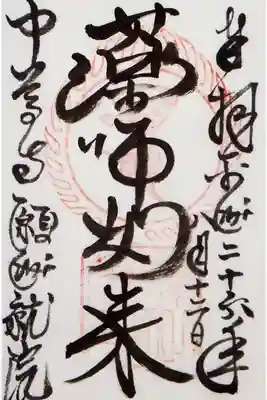 奉拝 平成二十六年
八月十二日
薬師如来
中尊寺 願成就院